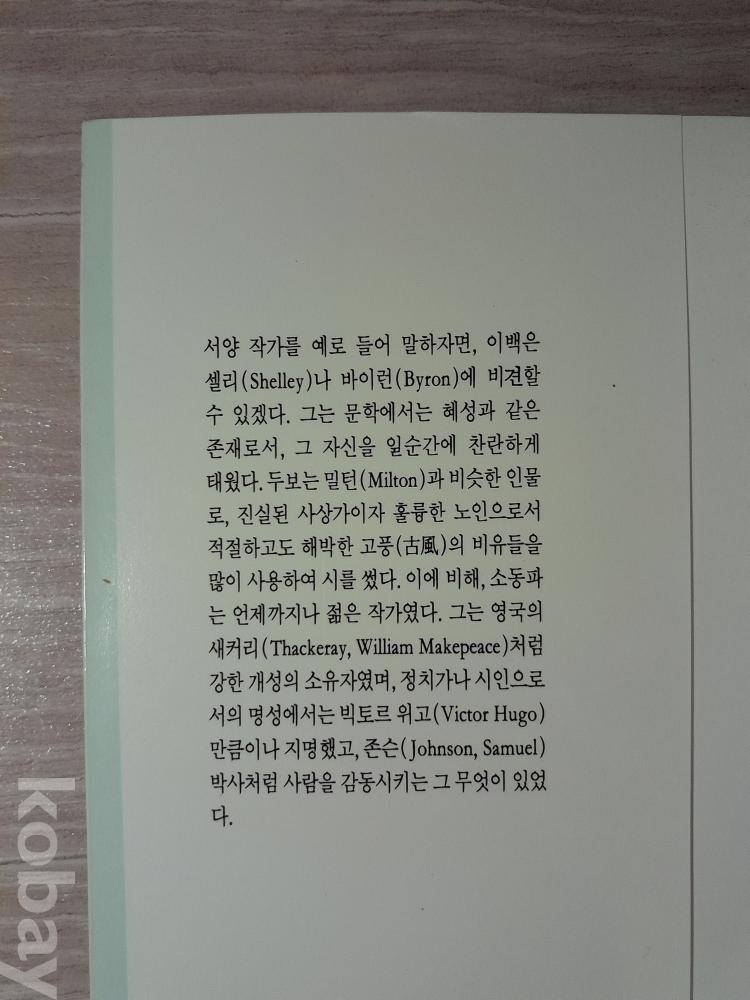 서양 작가를 예로 들어 말하자면, 이백은
셸리(Shelley)나 바이런(Byron)에 비견할
수 있겠다. 그는 문학에서는 혜성과 같은
존재로서, 그 자신을 일순간에 찬란하게
태웠다. 두보는 밀턴(Milton)과 비슷한 인물
로, 진실된 사상가이자 훌륭한 노인으로서
적절하고도 해박한 고풍(古風)의 비유들을
많이 사용하여 시를 썼다. 이에 비해, 소동파
는 언제까지나 젊은 작가였다. 그는 영국의
새커리(Thackeray, William Makepeace)처럼
강한 개성의 소유자였며, 정치가나 시인으로
서의 명성에서는 빅토르 위고(Victor Hugo)
만큼이나 지명했고, 존슨(Johnson, Samuel)
박사처럼 사람을 감동시키는 그 무엇이 있었
다.
kobay